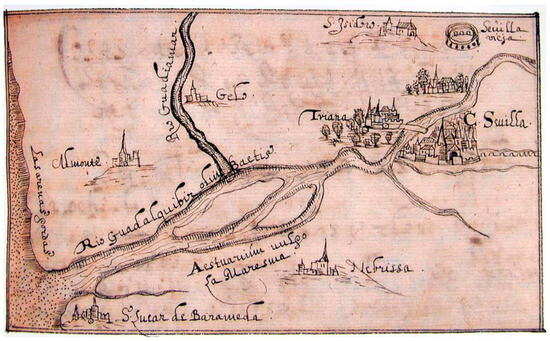 S. Isidro.
Sevilla
vieja.
Rio Guadiamar
Gelo.
Triana
C. Sevilla.
Almonte.
Las arenas gordas
Rio Guadalquibir olim Baetis
Aestuarium vulgo
la Maresma
Nebrissa.
S. Lucar de Barameda.